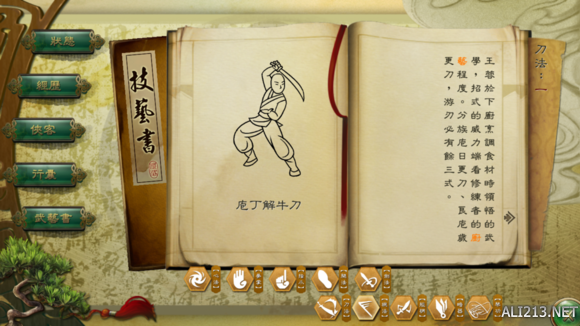 狀態
經歷
俠客
行囊
武藝書
技藝書
庖丁解牛刀
刀法：一
王蓉於下廚烹調食材時領悟的武
學，招式的威力端看修練者的廚
藝程度。分族庖日更刀、良庖歲
更刀，游刃必有餘三式。
ALI213.NET